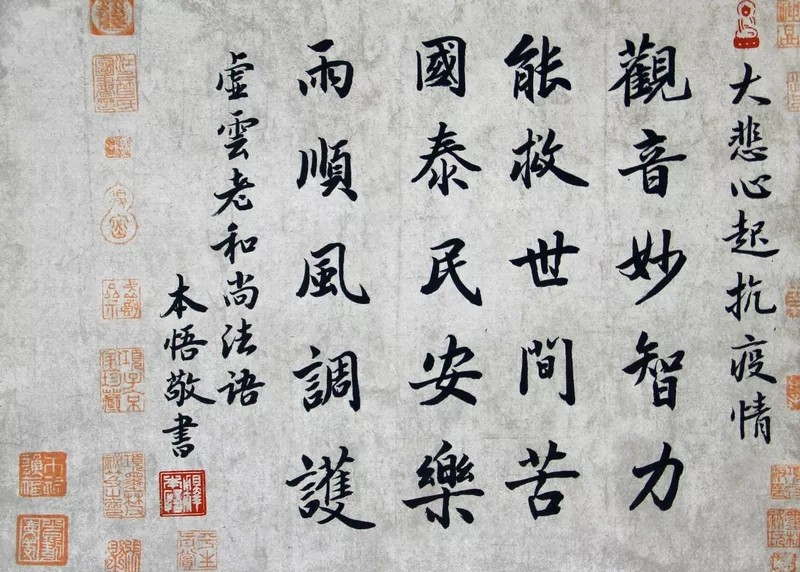 大悲心起抗疫情
觀音妙智力
能救世間苦
國泰民安樂
雨順風調護
虛雲老和尚法語
本悟敬書